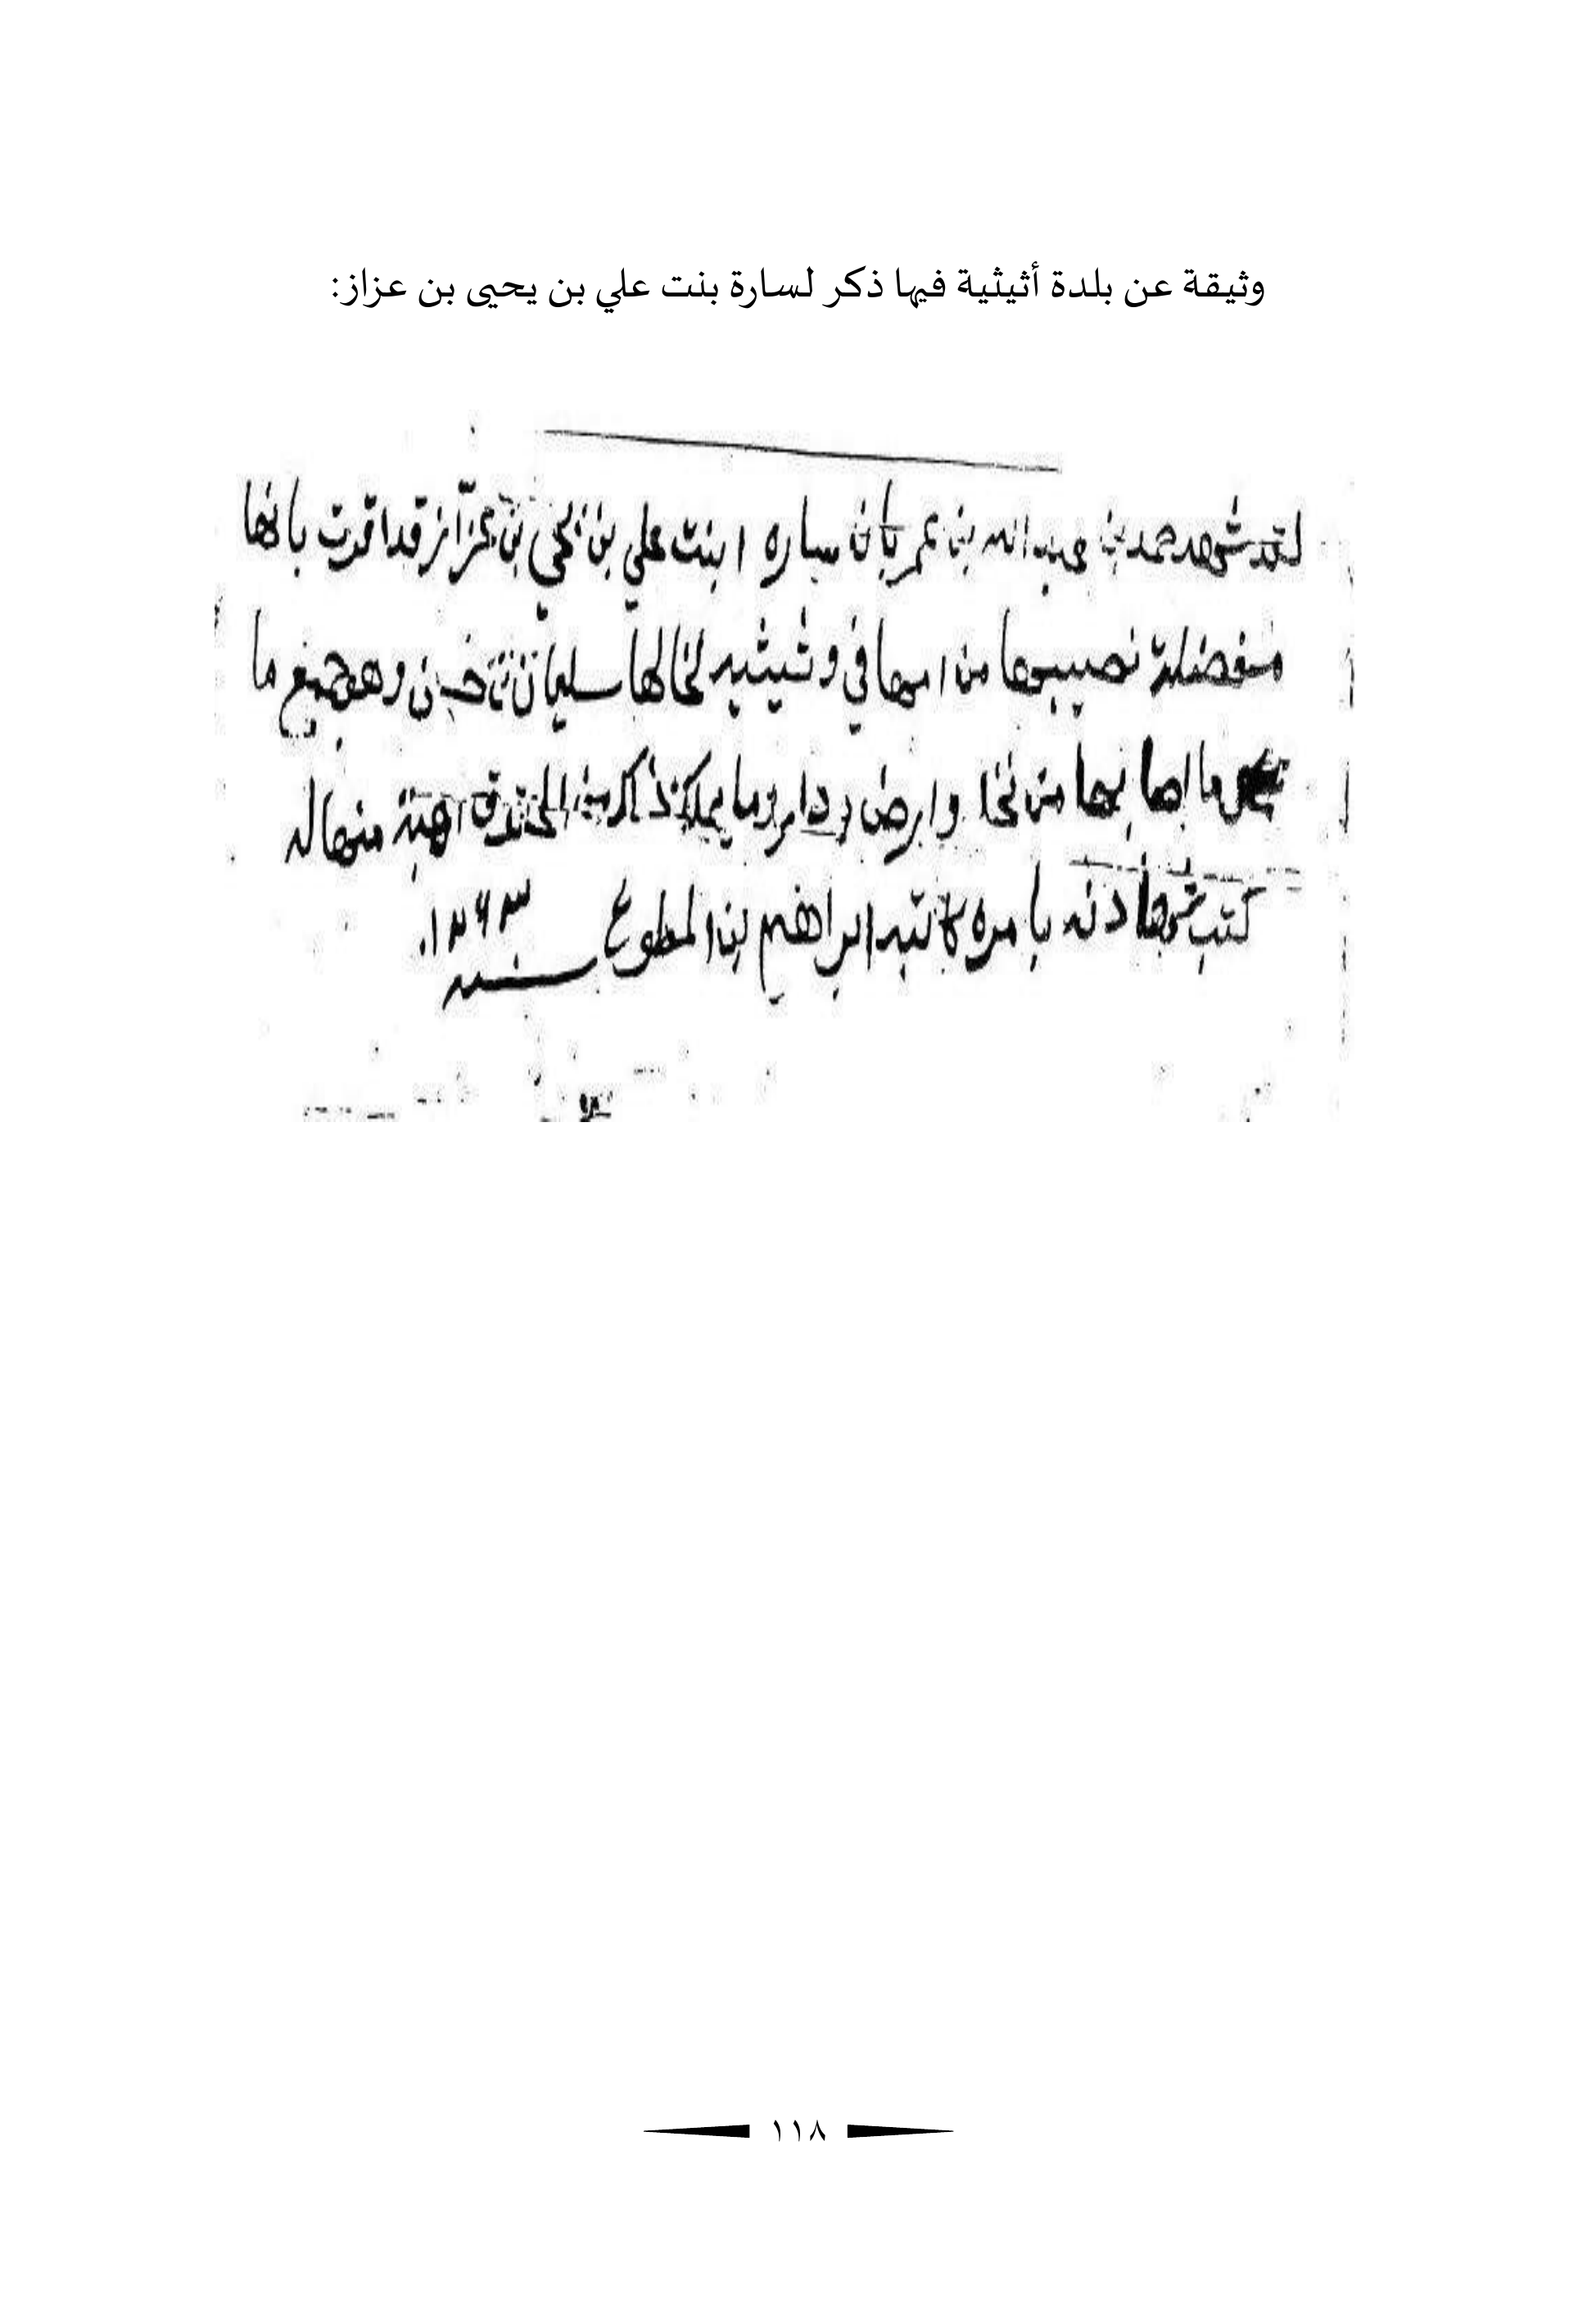 وثيقة عن بلدة أثيثية فيها ذكر لسارة بنت علي بن يحيى بن عزاز:
لقد شهد حمد بن عبدالله بن عمر بأن ساره ابنت علي بن يحيي بن عزاز قد اقرت بانها
نصيبها من امها في وثيثيه لخالها سليمان بن حسن وهو جميع ما
ما اصابها من نخل وارض ودار وما يملك ذكر من الخندق هبة منها له
كتب شهادته بامره كاتبه ابراهيم بن المطوع
سنه ١٣٦٣
١١٨